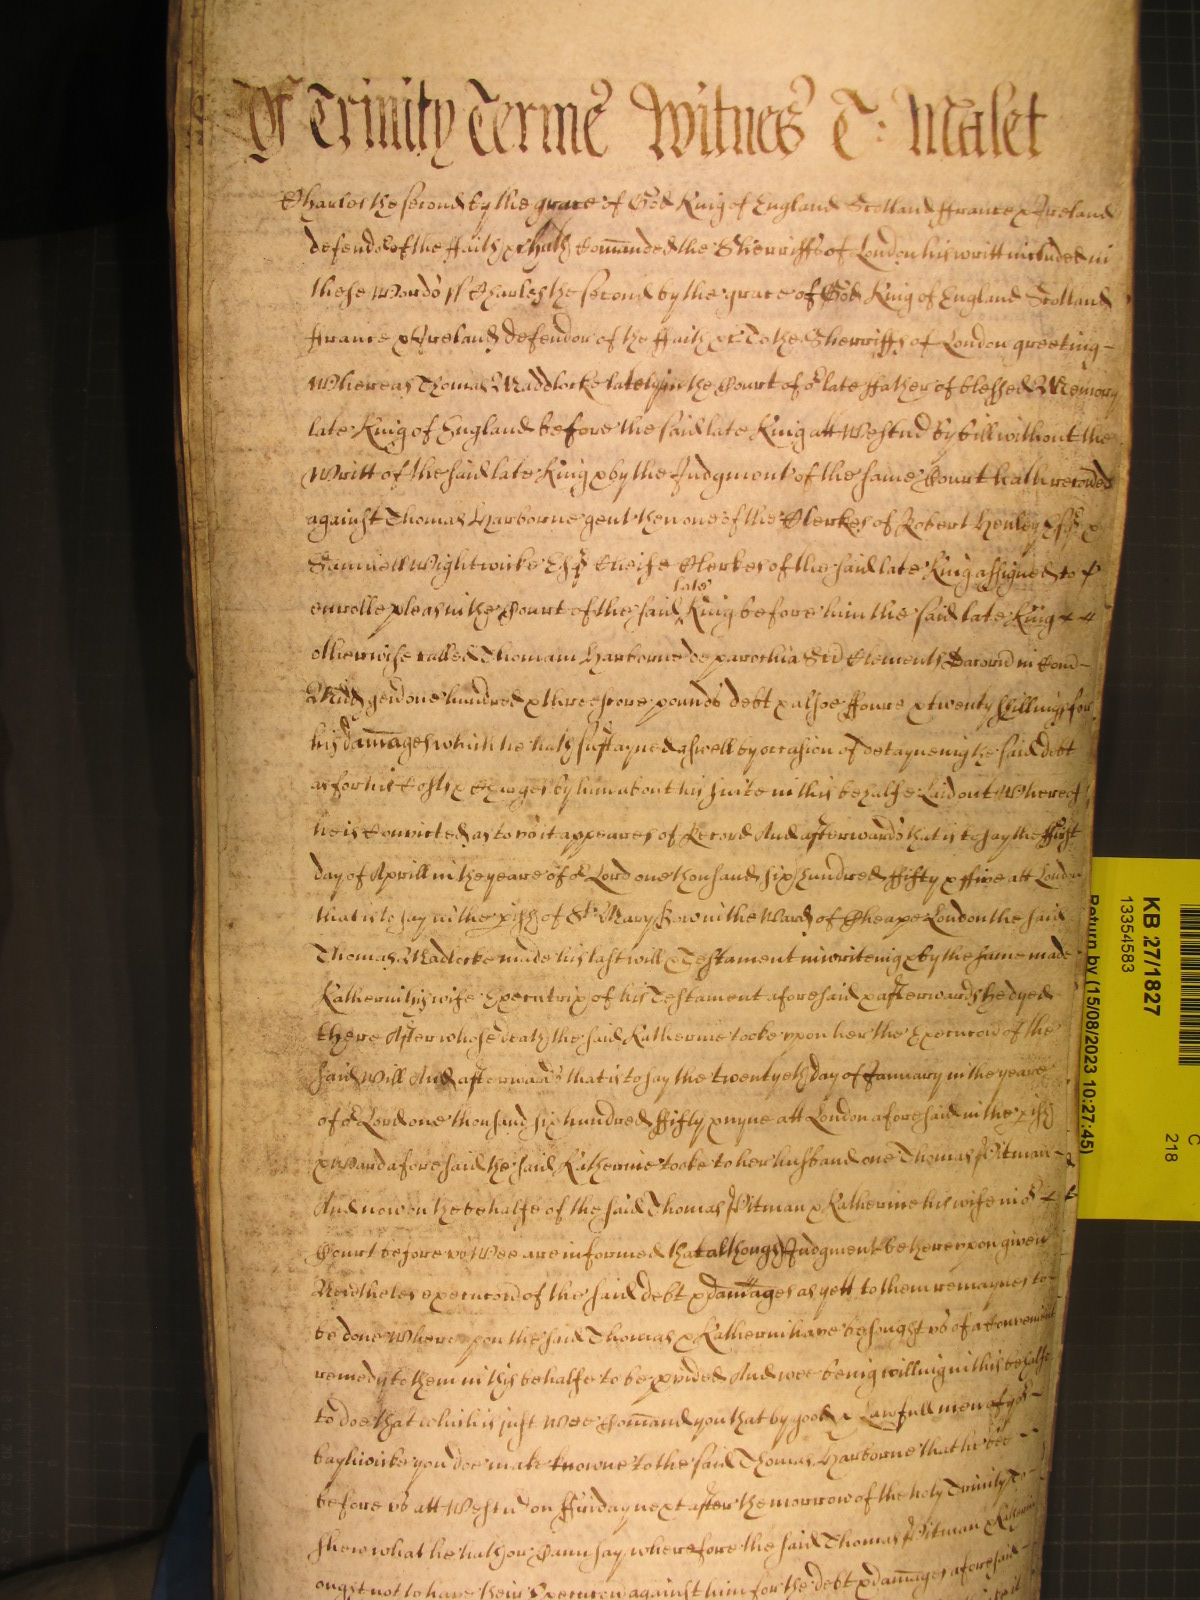 Of Trinity Terme Witnes T: Malet
Charles the second by the grace of God King of England Scotland ffrance & Ireland
defendor of the ffaith &c hath Comanded the Sherriffs of London his writt included in
these Words ss Charles the second by the grace of God King of England Scotland
ffrance & Ireland defendor of the ffaith &c To the Sherriffs of London greeting
Whereas Thomas Maddocke lately in the Court of or late ffather of blessed Memory
late King of England before the said late King att Westm by bill without the
Writt of the said late King & by the Judgment of the same Court hath recoved
against Thomas Harborne gent then one of the Clerkes of Robert Henley Esq &
Samuell Wightwicke Esq Cheife Clerkes of the said late King assigned to
enrolle pleas in the Court of the said late King before him the said late King
otherwise called Thomam Harborne de parochia Sci Clementis Dacord in Com
Midd gen one hundred & threescore pounds debt & alsoe ffoure & twenty shillings for
his damages which he hath sustayned aswell by occasion of detayneing the said debt
as for his Costs & Charges by him about his suite in this behalfe Laid out Whereof
he is Convicted as to us it appeares of Record And afterwards that is to say the ffirst
day of Aprill in the yeare of or Lord one thousand six hundred ffifty & ffive att London
that is to say in the pish of St Mary Bow in the Ward of Cheape London the said
Thomas Madocke made his last will & Testament in writeing & by the same made
Katherin his wife Executrix of his Testament aforesaid & afterwards hedyed
there After whose death the said Katherine tooke upon her the Execucon of the
said will And afterwards that is to say the twentyeth day of January in the yeare
of or Lord one thousand six hundred ffifty & nyne att London aforesaid in the pish
& Ward aforesaid the said Katherine tooke to her husband one Thomas Pitman
And now on the behalfe of the said Thomas Pitman & Katherine his wife in or
Court before us Wee are informed that although Judgment be thereupon given
Neverheles execucon of the said debt & damages as yett to them remaynes to
be done Whereupon the said Thomas & Katherin have besought us of a Convenient
remedy to them in this behalfe to be pvided And wee being willing in this behalfe
to doe that which is just Wee Comand you that by good & Lawfull men of yor
bayliwike you doe make knowne to the said Thomas Harborne that he bee
before us att Westm on ffriday next after the morrow of the holy Trinity To
shew what he hath or Cann say wherefore the said Thomas Pitman & Katherin
ought not to have their Execucon against him for the debt & damages aforesaid
KB 27/1827
13354583
Return by (15/08/2023 10:27:45)
C
218